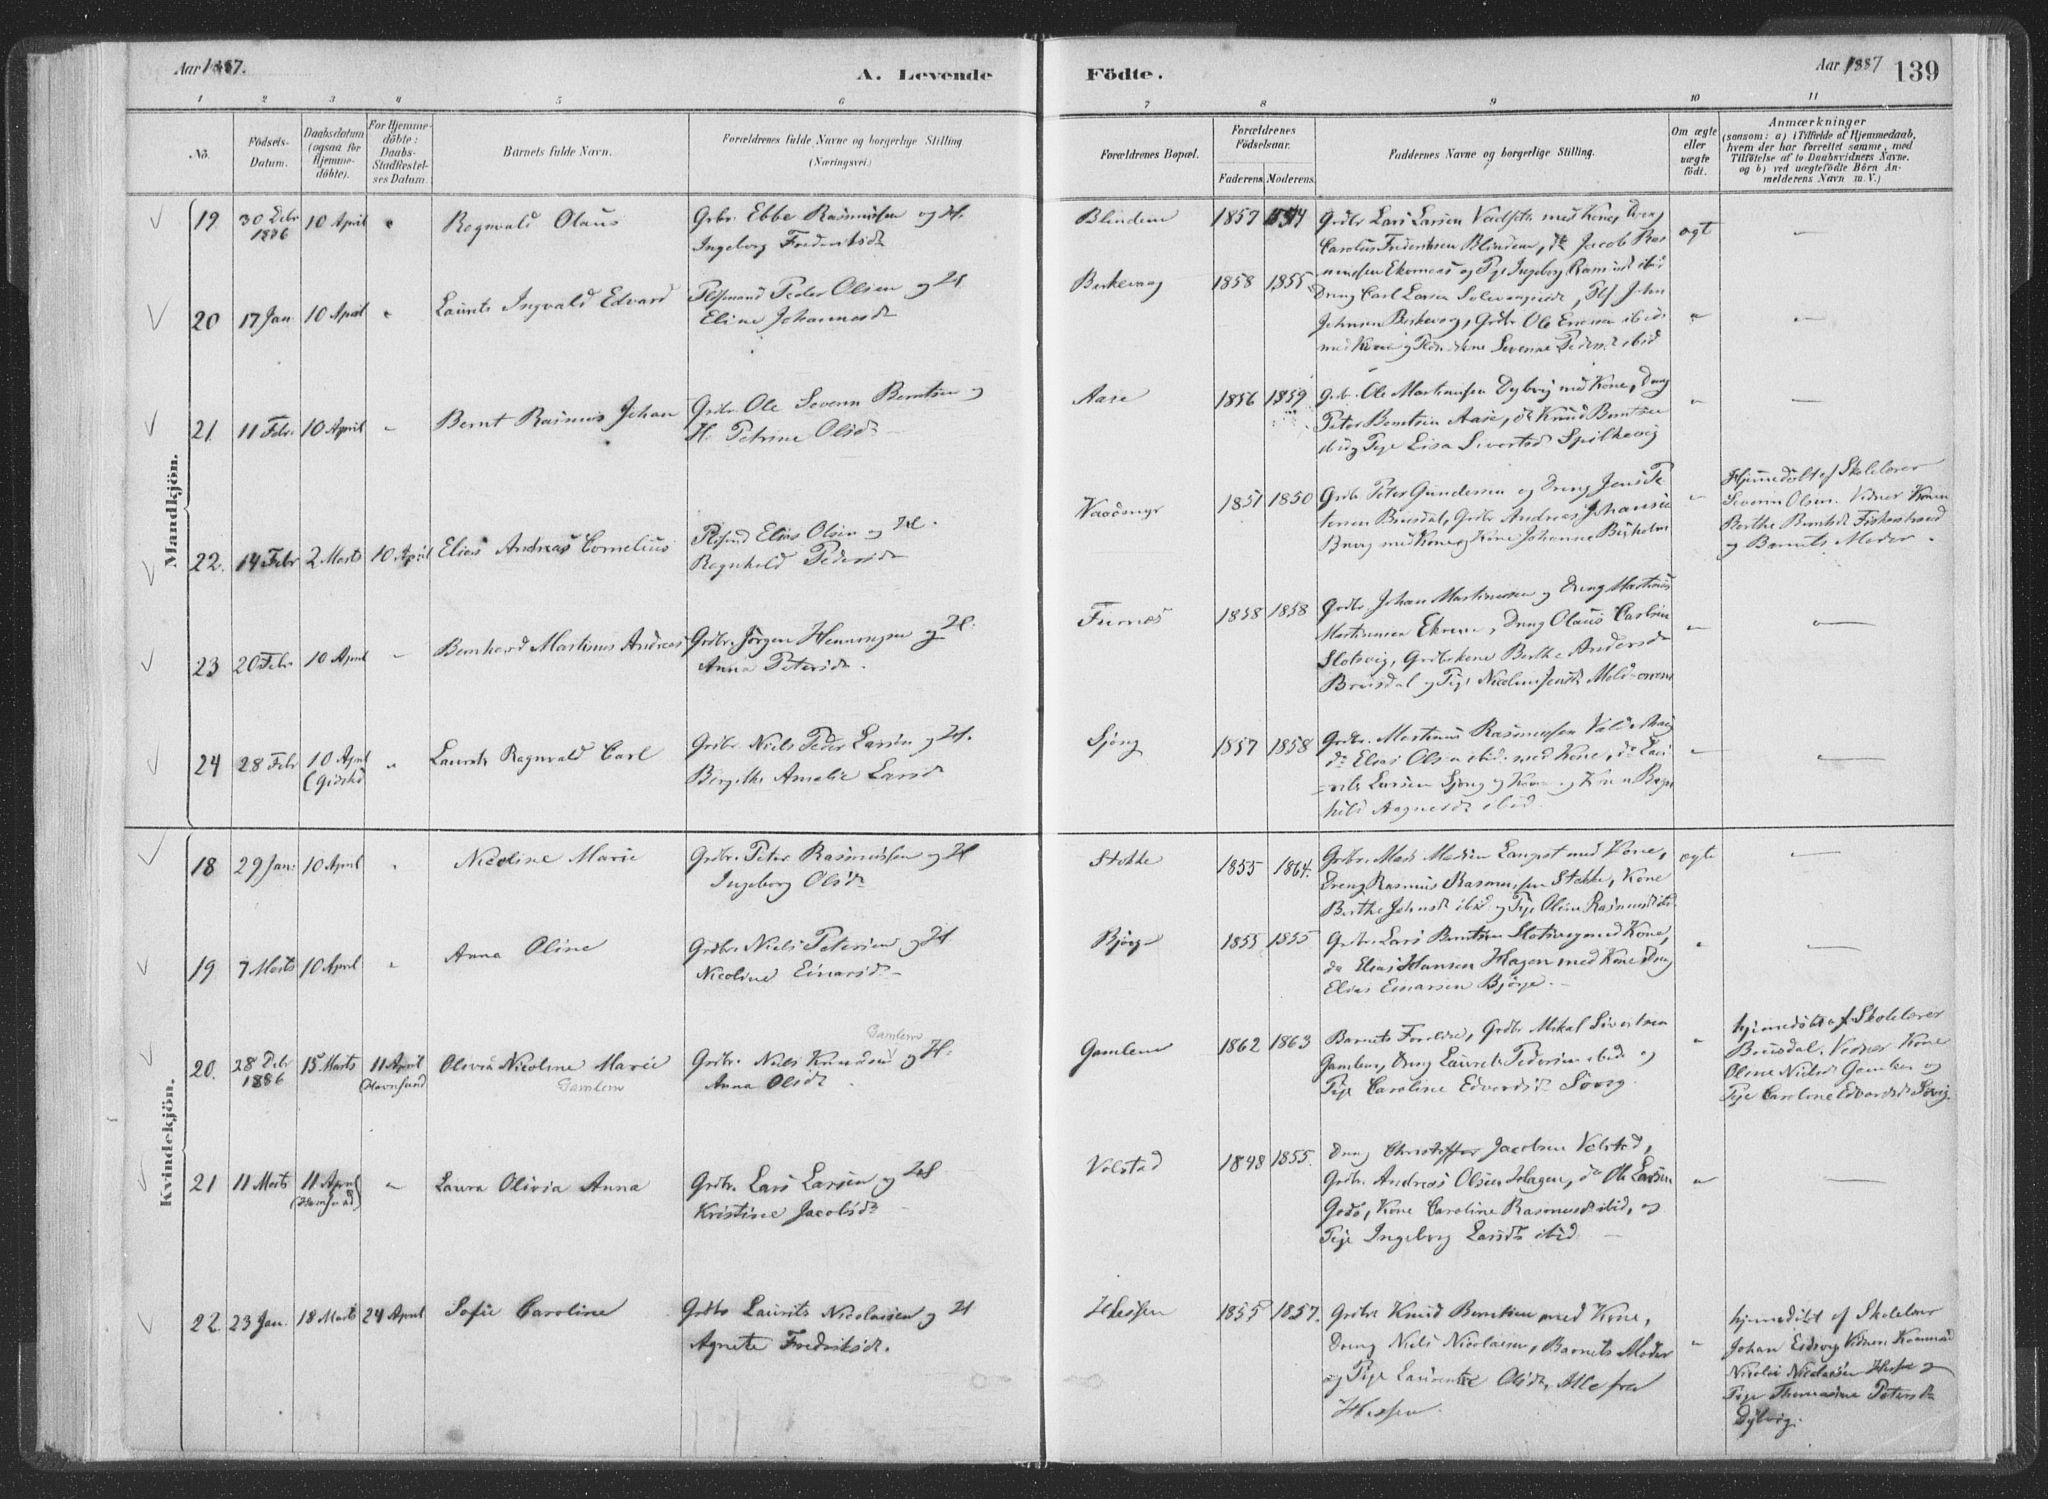 Aar 1887.
A. Levende
Födte.
Aar 1887
139
1 2 3 4 5 6 7 8 9 10 11
No.
Födsels-
Datum.
Daabsdatum
(ogsaa for
Hjemme-
döbte).
For Hjemme-
döbte:
Daabs-
Stadfæstel-
ses Datum.
Barnets fulde Navn.
Forældrenes fulde Navne og borgerlige Stilling
(Næringsvei.)
Forældrenes Bopæl.
Forældrenes
Födselsaar.
Faderens. Moderens.
Faddernes Navne og borgerlige Stilling.
Om ægte
eller
uægte
födt.
Anmærkninger
(saasom: a) i Tilfælde af Hjemmedaab,
hvem der har forrettet samme, med
Tilföielse af to Daabsvidners Navne.
og b) ved uægtefödte Börn An-
melderens Navn m. V.)
Mandkjön.
19. 30 Debr 1886 10 April Ragnvald Olaus
Grbr. Ebbe Rasmussen og H.
Ingeborg Frederiksdr
Blindem 1857 1854
Grdbr Lars Larsen Vedsete med Kone, Dreng
Carolus Frederiksen Blindem, do Jacob Ras-
mussen Ekornæs og Pige Ingeborg Rasmusdr ibid
ægt —
20 17 Jan 10 April Laurits Ingvald Edvard
Plsmand Peder Olsen og H.
Eline Johannesdr
Birkevaag 1858 1855
Dreng Carl Larsen, Plf John
Johnsen Birkevag, Grdbr Ole ibid
med Kone og Severine Pedersdr ibid
" —
21. 11 Febr. 10 April " Bernt Rasmus Johan
Grdbr. Ole Severin Berntsen og
H. Petrine Olsdr —
Aase 1856 1859
Grbr. Ole Martinusen Dybvig med Kone, Dreng
Peter Berntsen Aase, do Knud Berntsen
ibid og Pige Lisa Sivertsdr Spilkevig
" —
22. 14 Febr 2 Marts 10 April Elias Andreas Cornelius
Plsmd Elias Olsen og H.
Ragnhild Pedersdr
1851 1850
Grdbr Peter Gundersen og Dreng Jens Pe-
tersen Brusdal, Grdbr Andreas Johansen
med Kone og Kone Johanne
"
Hjemmedöbt af Skolelærer
Severin Olsen. Vidner Konen
Berthe Fiskestrand
og Barnets Moder.
23 20 Febr 10 April " Bernhard Martinus Andreas
Grdbr. Jörgen Henningsen og H.
Anna Petersdr.
Furnæs 1858 1858
Grdbr Johan Martinusen og Dreng Martinus
Martinusen Ekrem, Dreng Olaus Carlsen
Slotsvig, Grdbrkone Berthe Andersdr
Brusdal og Pige Nicoline Jensdr
" —
24 28 Febr 10 April (Giske) " Laurits Ragnvald Carl
Grdbr. Niels Peder Larsen og H.
Birgithe Amalie Larsdr
Sjong 1857 1858
Grdbr. Martinus Rasmussen
do Elias Olsen ibid med Kone, do Lau-
rits Larsen Sjong og Kone og Kone Ragn-
hild ibid.
" —
Kvindekjön.
18 29 Jan. 10 April " Nicoline Marie
Grdbr. Peter Rasmussen og H
Ingeborg Olsdr
Stokke 1855 1864.
Grdbr. Mads Madsen med Kone,
Dreng Rasmus Rasmussen Stokke, Kone
Berthe Johnsdr ibid og Pige Oline Rasmusdr ibd
ægte —
19 7 Marts 10 April " Anna Oline
Grdbr. Niels Petersen og H
Nicoline Einarsdr —
Bjørge 1855 1855
Grdbr. Lars Berntsen Slotsvig med Kone,
do Elias Hansen Hagen med Kone, Dreng
Elias Einarsen Bjørge. —
" —
20. 28 Debr 1886 15 Marts 11 April (Havnsund) Olivia Nicoline Marie
Gamlem
Gamlem
Grdbr. Niels Knudsen og H.
Anna Olsdr.
Gamlem 1862 1863
Barnets Forældre, Grdbr Mikal Sivertsen
Gamlem, Dreng Laurits Pedersen ibid og
Pige Caroline Edvardsdr Søvig.
"
hjemmedöbt af Skolelærer
Brusdal. Vidner Kone
Oline Nielsdr Gamlem og
Pige Caroline Edvardsdr Søvig.
21 11 Marts 11 April (Havnsund) " Laura Olivia Anna
Grdbr. Lars Larsen og H
Kristine Jacobsdr —
Valstad 1848 1855.
Dreng Christoffer Jacobsen Valstad,
Grdbr. Andreas Olsen Hagen, do Ole Larsen
Godø, Kone Caroline Rasmusdr ibid, og
Pige Ingeborg Larsdr ibid. —
" —
22. 23 Jan. 18 Marts 24 April Sofie Caroline
Grdbr Laurits Nicolaisen og H
Agnete Fredriksdr.
Hessen 1855 1857.
Grdbr Knud Berntsen med Kone,
Dreng Niels Nicolaisen, Barnets Moder
og Pige Laurentse Olsdr, Alle fra
Hessen.
"
hjemmedöbt af Skolelærer
Johan Eidsvig. Vidner:
Nicolai Nicolaisen Hessen og
Pige Thomasine Petersdr
Dybvig.